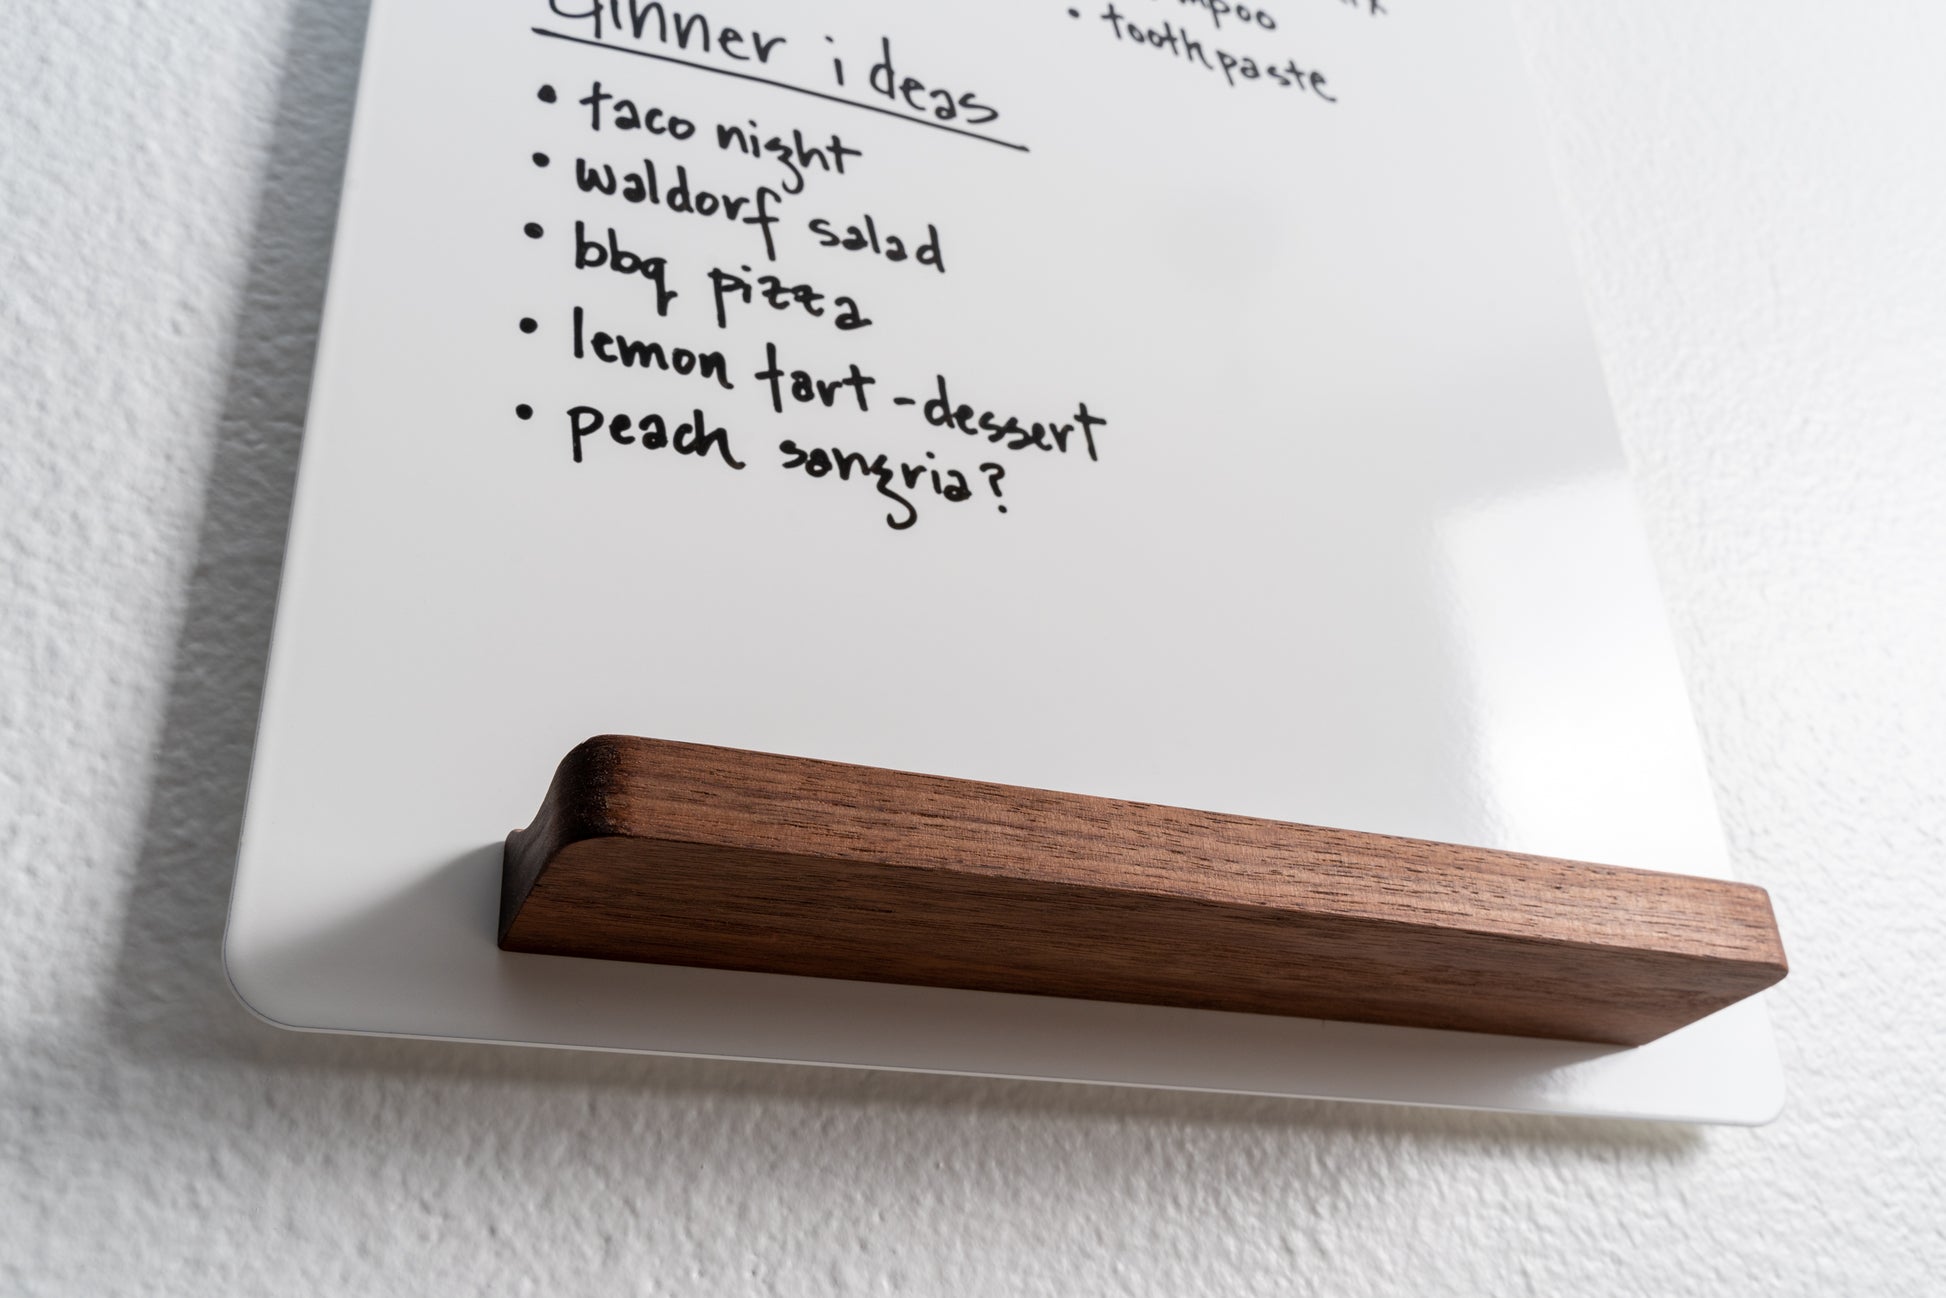 dinner ideas
• taco night
• waldorf salad
• bbq pizza
• lemon tart - dessert
• peach sangria?
• toothpaste